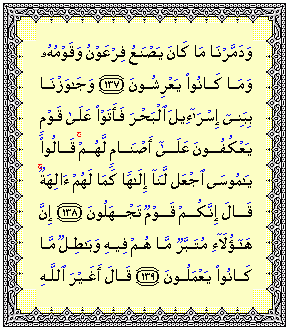 وَدَمَّرْنَا مَا كَانَ يَصْنَعُ فِرْعَوْنُ وَقَوْمُهُۥ
وَمَا كَانُوا۟ يَعْرِشُونَ ١٣٧ وَجَٰوَزْنَا
بِبَنِىٓ إِسْرَٰٓءِيلَ ٱلْبَحْرَ فَأَتَوْا۟ عَلَىٰ قَوْمٍ
يَعْكُفُونَ عَلَىٰٓ أَصْنَامٍ لَّهُمْ ۚ قَالُوا۟
يَٰمُوسَى ٱجْعَل لَّنَآ إِلَٰهًا كَمَا لَهُمْ ءَالِهَةٌ ۚ
قَالَ إِنَّكُمْ قَوْمٌ تَجْهَلُونَ ١٣٨ إِنَّ
هَٰٓؤُلَآءِ مُتَبَّرٌ مَّا هُمْ فِيهِ وَبَٰطِلٌ مَّا
كَانُوا۟ يَعْمَلُونَ ١٣٩ قَالَ أَغَيْرَ ٱللَّهِ